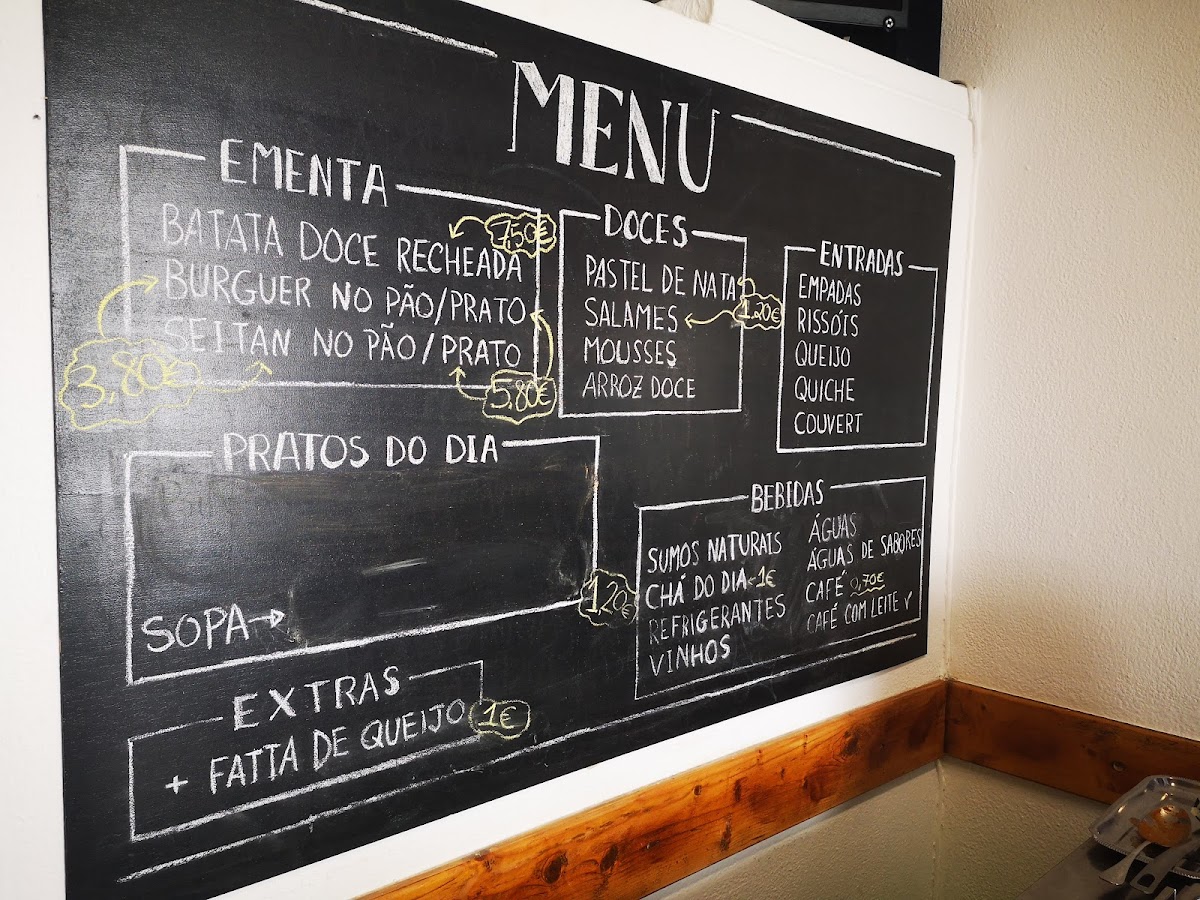 MENU
EMENTA
BATATA DOCE RECHEADA 7,50€
BURGUER NO PÃO/PRATO
SEITAN NO PÃO/PRATO
3,80€
5,80€
DOCES
PASTEL DE NATA
SALAMES
1.20€
MOUSSES
ARROZ DOCE
ENTRADAS
EMPADAS
RISSÓIS
QUEIJO
QUICHE
COUVERT
PRATOS DO DIA
SOPA→
1,20€
BEBIDAS
SUMOS NATURAIS
CHÁ DO DIA 1€
REFRIGERANTES
VINHOS
ÁGUAS
ÁGUAS DE SABORES
CAFÉ 0,70€
CAFÉ COM LEITE ✓
EXTRAS
+ FATIA DE QUEIJO 1€